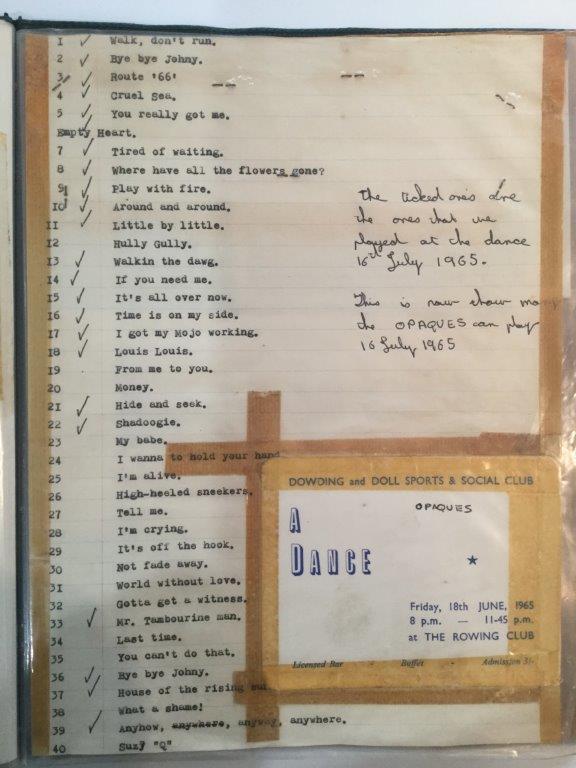 1 Walk, don't run.
2 Bye bye Johny.
3 Route '66'
4 Cruel Sea.
5 You really got me.
Empty Heart.
7 Tired of waiting.
8 Where have all the flowers gone?
9 Play with fire.
10 Around and around.
11 Little by little.
12 Hully Gully.
13 Walkin the dawg.
14 If you need me.
15 It's all over now.
16 Time is on my side.
17 I got my Mojo working.
18 Louis Louis.
19 From me to you.
20 Money.
21 Hide and seek.
22 Shadoogie.
23 My babe.
24 I wanna to hold your hand
25 I'm alive.
26 High-heeled sneekers.
27 Tell me.
28 I'm crying.
29 It's off the hook.
30 Not fade away.
31 World without love.
32 Gotta get a witness.
33 Mr. Tambourine man.
34 Last time.
35 You can't do that.
36 Bye bye Johny.
37 House of the rising sun.
38 What a shame!
39 Anyhow, anywhere, anyway, anywhere.
40 Suzy "Q"
The ticked ones are
the ones that we
played at the dance
16th July 1965.
This is now show many
the OPAQUES can play
16 July 1965
DOWDING and DOLL SPORTS & SOCIAL CLUB
OPAQUES
A
DANCE
Friday, 18th JUNE, 1965
8 p.m. — 11-45 p.m.
at THE ROWING CLUB
Licensed Bar - Buffet - Admission 3/-